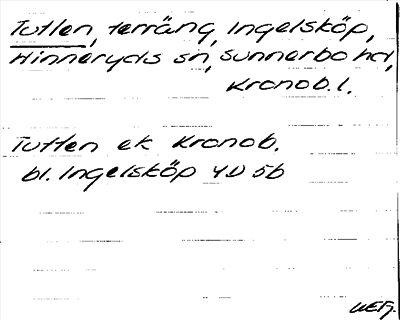 Tutlen, terräng, Ingelsköp,
Hinneryds sn, Sunnerbo hd,
Kronob. l.
Tutlen ek Kronob.
bl. Ingelsköp 4D 5b